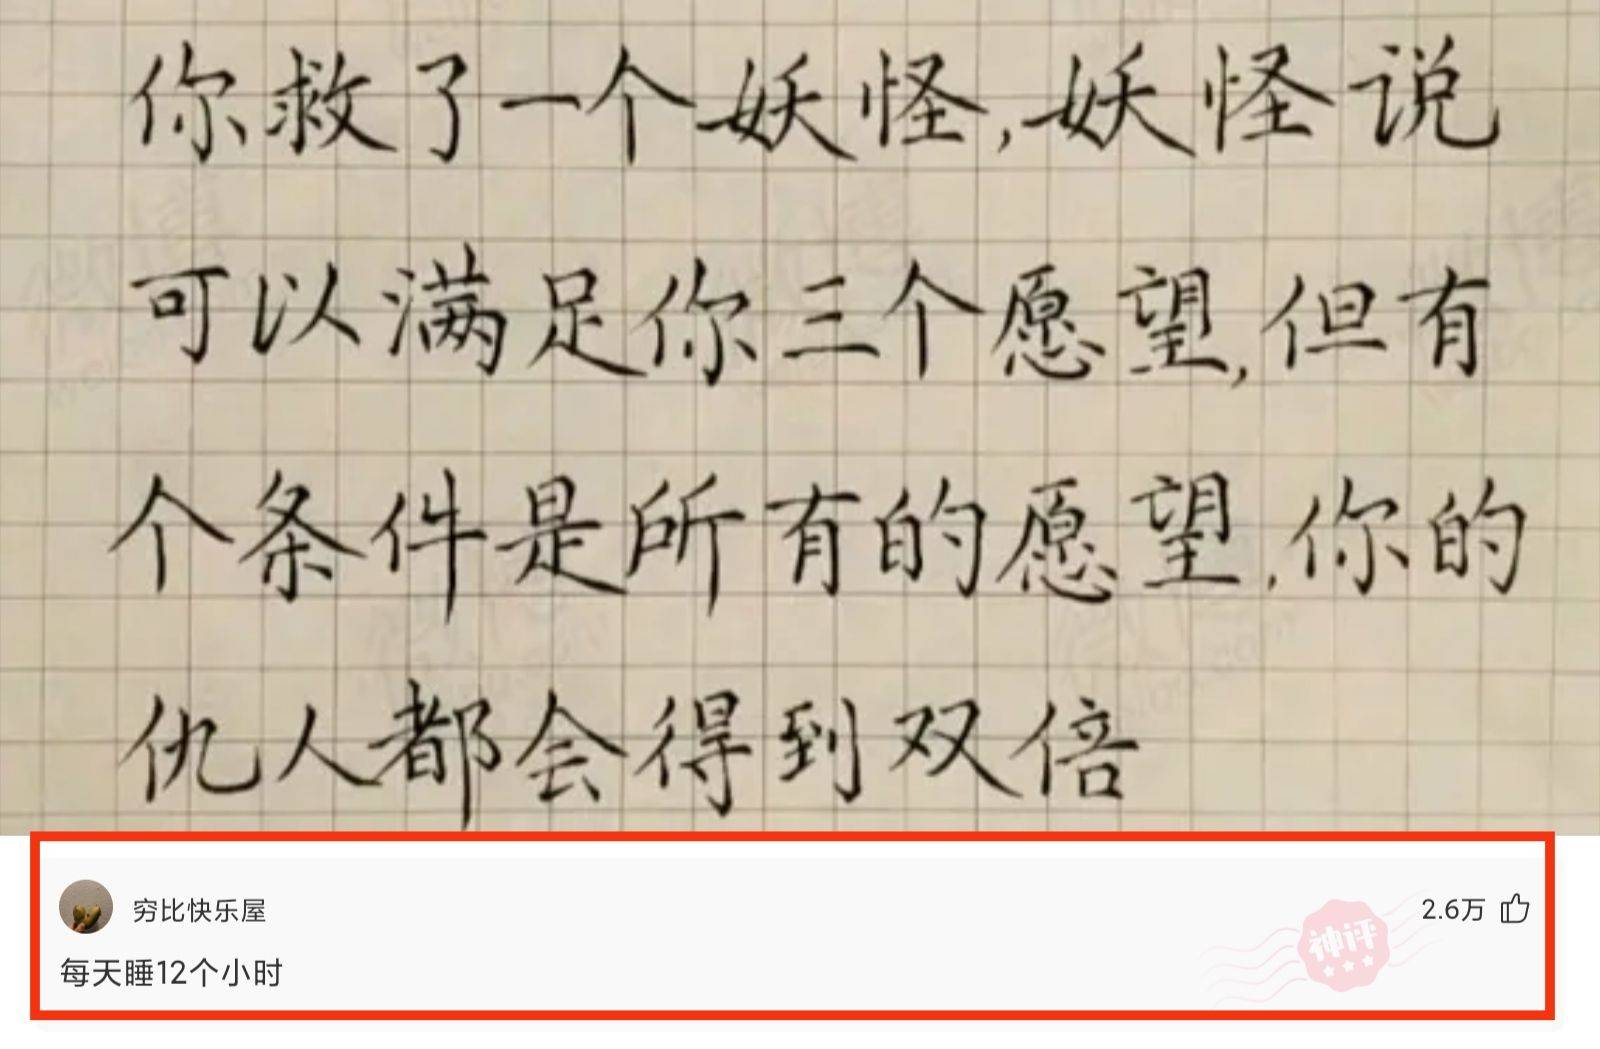 你救了一个妖怪,妖怪说
可以满足你三个愿望,但有
个条件是所有的愿望,你的
仇人都会得到双倍
穷比快乐屋
2.6万
神评
每天睡12个小时